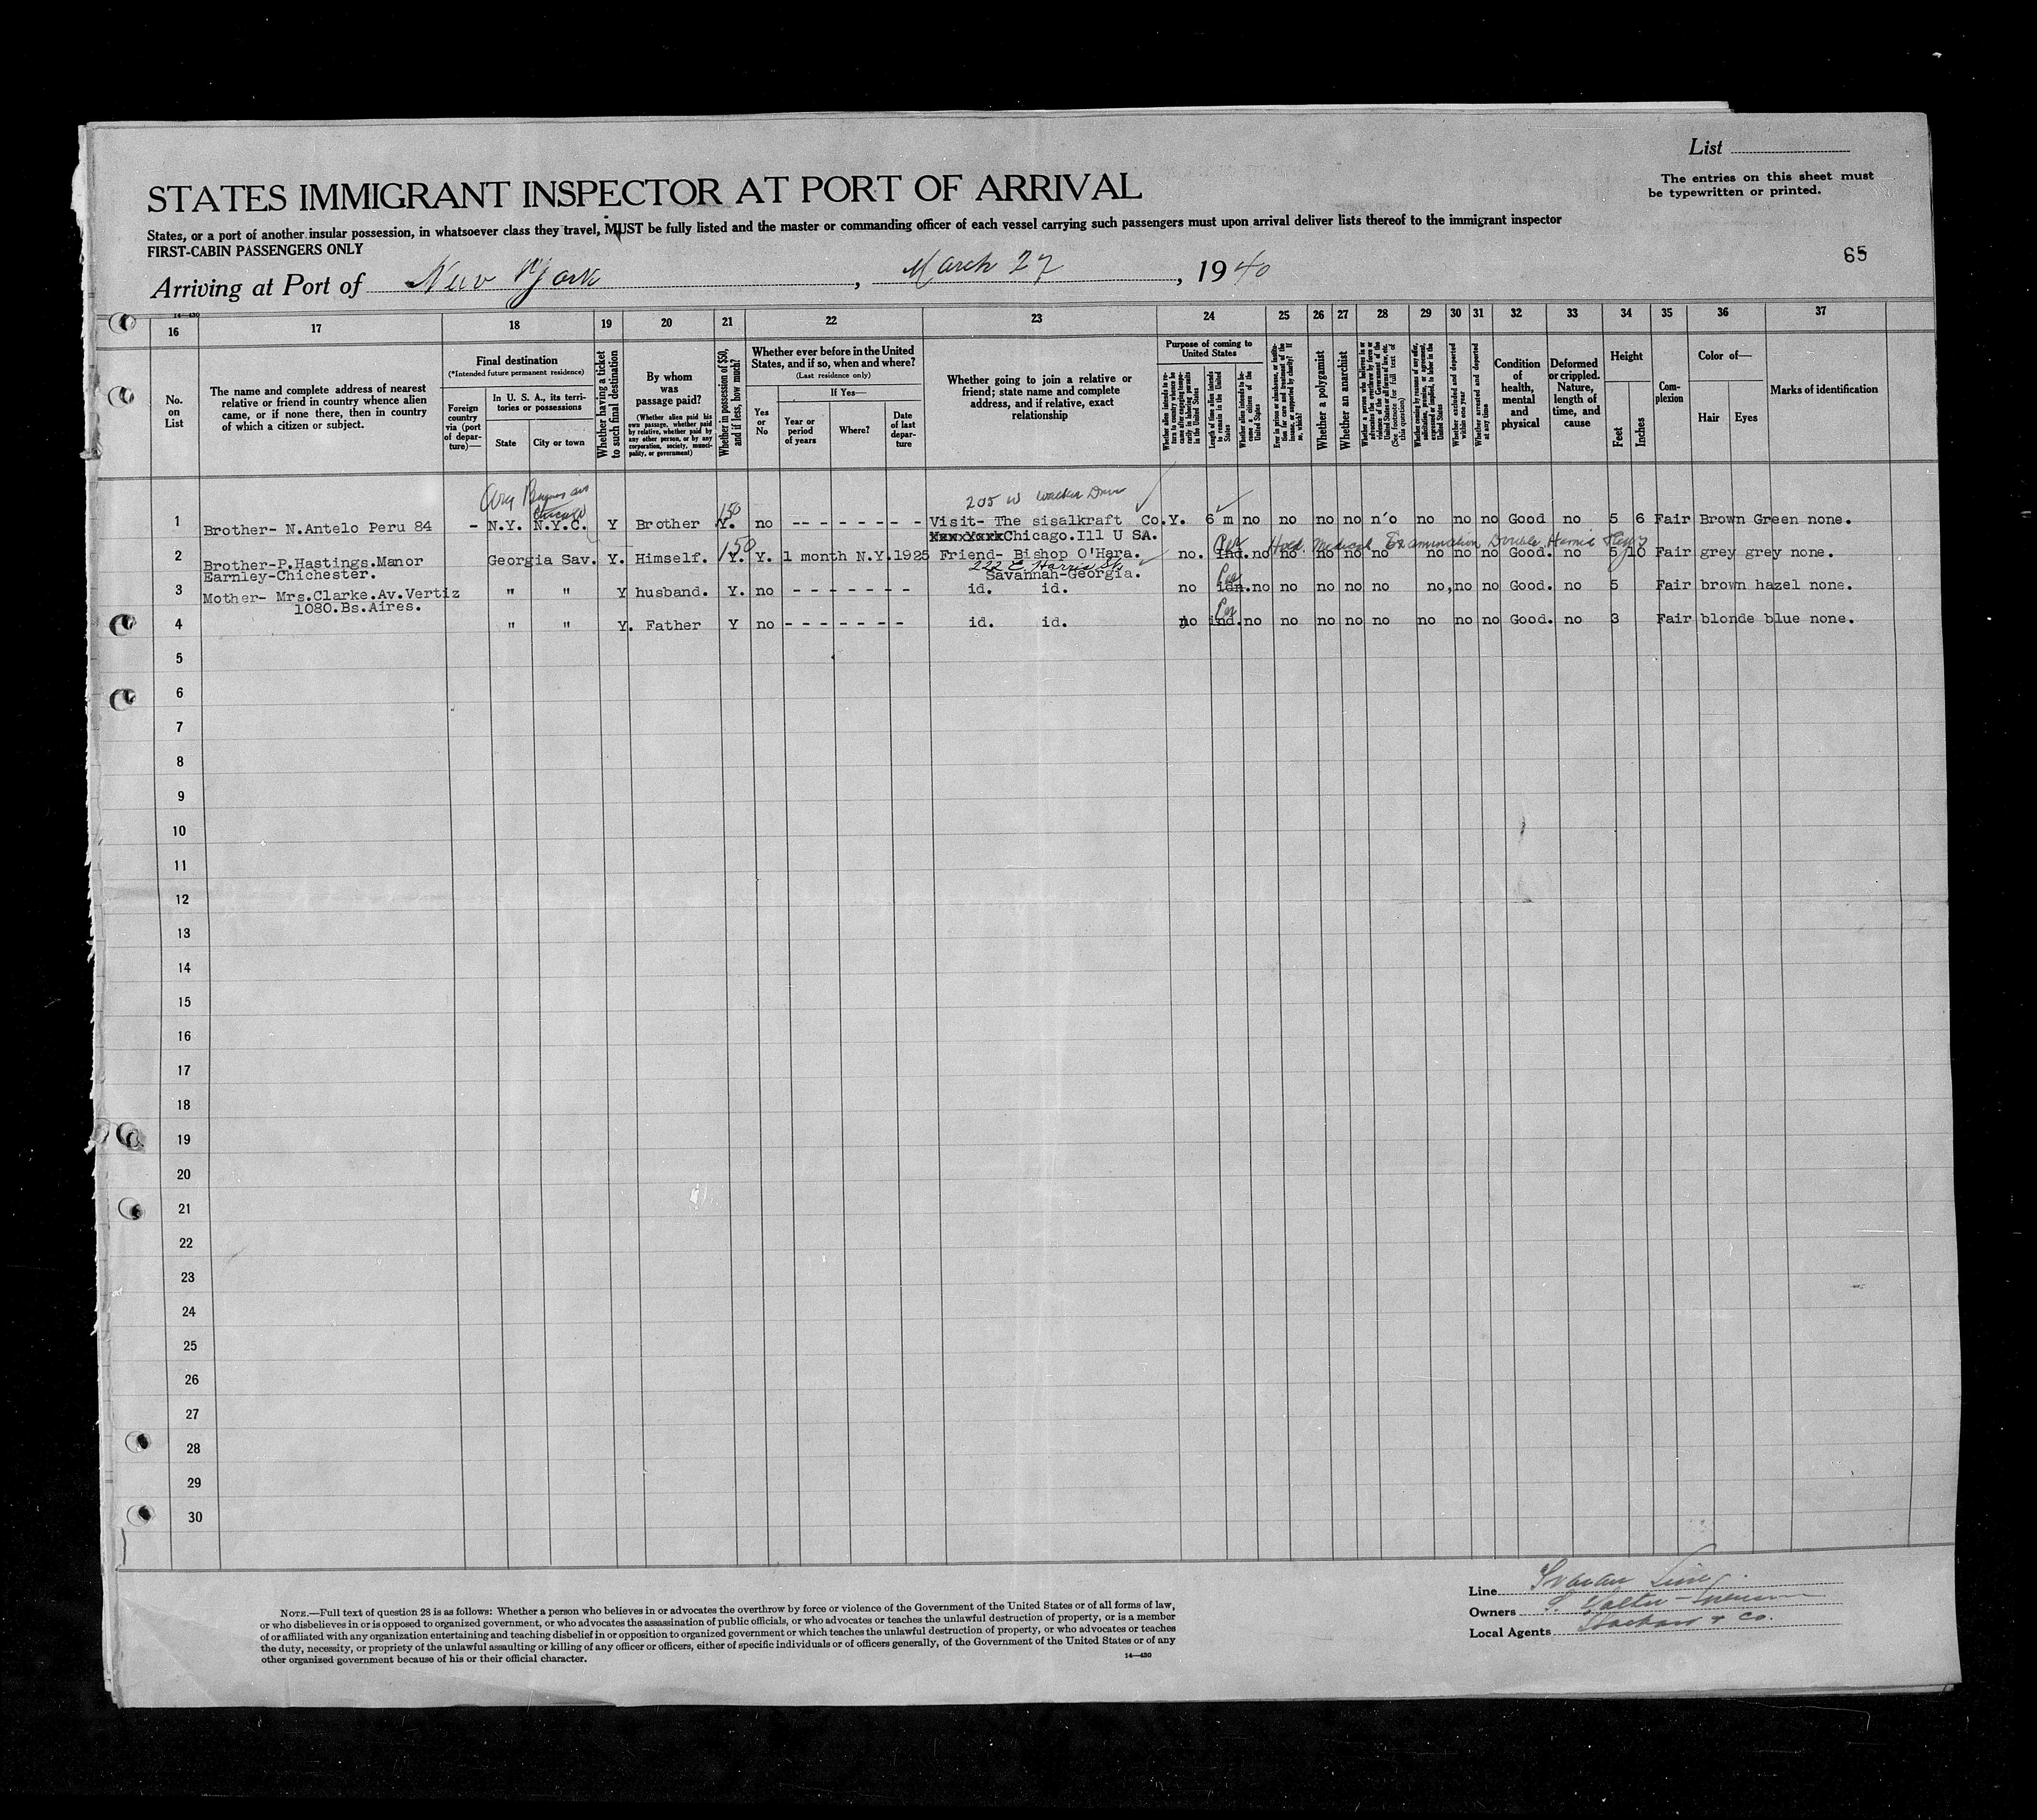 List
The entries on this sheet must
be typewritten or printed.
STATES IMMIGRANT INSPECTOR AT PORT OF ARRIVAL
States, or a port of another insular possession, in whatsoever class they travel, MUST be fully listed and the master or commanding officer of each vessel carrying such passengers must upon arrival deliver lists thereof to the immigrant inspector
FIRST-CABIN PASSENGERS ONLY
65
Arriving at Port of New York, March 27, 1940
14—430
16 17 18 19 20 21 22 23 24 25 26 27 28 29 30 31 32 33 34 35 36 37
No. on List
The name and complete address of nearest relative or friend in country whence alien came, or if none there, then in country of which a citizen or subject.
Final destination
(*Intended future permanent residence)
Foreign country via (port of departure)—
In U. S. A., its territories or possessions
State
City or town
Whether having a ticket to such final destination
By whom was passage paid?
(Whether alien paid his own passage, whether paid by relative, whether paid by any other person, or by any corporation, society, municipality, or government)
Whether in possession of $50, and if less, how much?
Whether ever before in the United States, and if so, when and where?
(Last residence only)
Yes or No
If Yes—
Year or period of years
Where?
Date of last departure
Whether going to join a relative or friend; state name and complete address, and if relative, exact relationship
Purpose of coming to United States
Length of time alien intends to remain in the United States
Whether alien intends to become a citizen of the United States
Whether a polygamist
Whether an anarchist
(See footnote for full text of this question)
Whether excluded and deported within one year
Whether arrested and deported at any time
Condition of health, mental and physical
Deformed or crippled. Nature, length of time, and cause
Height
Feet
Inches
Complexion
Color of—
Hair
Eyes
Marks of identification
Chicago
150
205 W Wacker Drive
1 Brother- N.Antelo Peru 84 - N.Y. N.Y.C. Y Brother Y. no -- - - - - - - Visit- The sisalkraft Co. Y. 6 m no no no no n'o no no no Good no 5 6 Fair Brown Green none.
Chicago.Ill U SA.
150
Hold Medical Examination Double Hernia
2 Brother-P.Hastings.Manor Georgia Sav. Y. Himself. Y. Y. 1 month N.Y.1925 Friend- Bishop O'Hara. no. ind. no no no no no no no no Good. no 5 10 Fair grey grey none.
Earnley-Chichester.
222 E. Harris St.
Savannah-Georgia.
3 Mother- Mrs.Clarke.Av.Vertiz " " Y husband. Y. no - - - - - - - id. id. no idn. no no no no no no, no no Good. no 5 Fair brown hazel none.
1080.Bs.Aires.
4 " " Y. Father Y no - - - - - - - id. id. no ind. no no no no no no no no Good. no 3 Fair blonde blue none.
5
6
7
8
9
10
11
12
13
14
15
16
17
18
19
20
21
22
23
24
25
26
27
28
29
30
NOTE.—Full text of question 28 is as follows: Whether a person who believes in or advocates the overthrow by force or violence of the Government of the United States or of all forms of law,
or who disbelieves in or is opposed to organized government, or who advocates the assassination of public officials, or who advocates or teaches the unlawful destruction of property, or is a member
of or affiliated with any organization entertaining and teaching disbelief in or opposition to organized government or which teaches the unlawful destruction of property, or who advocates or teaches
the duty, necessity, or propriety of the unlawful assaulting or killing of any officer or officers, either of specific individuals or of officers generally, of the Government of the United States or of any
other organized government because of his or their official character.
14—430
Line
Owners
Local Agents